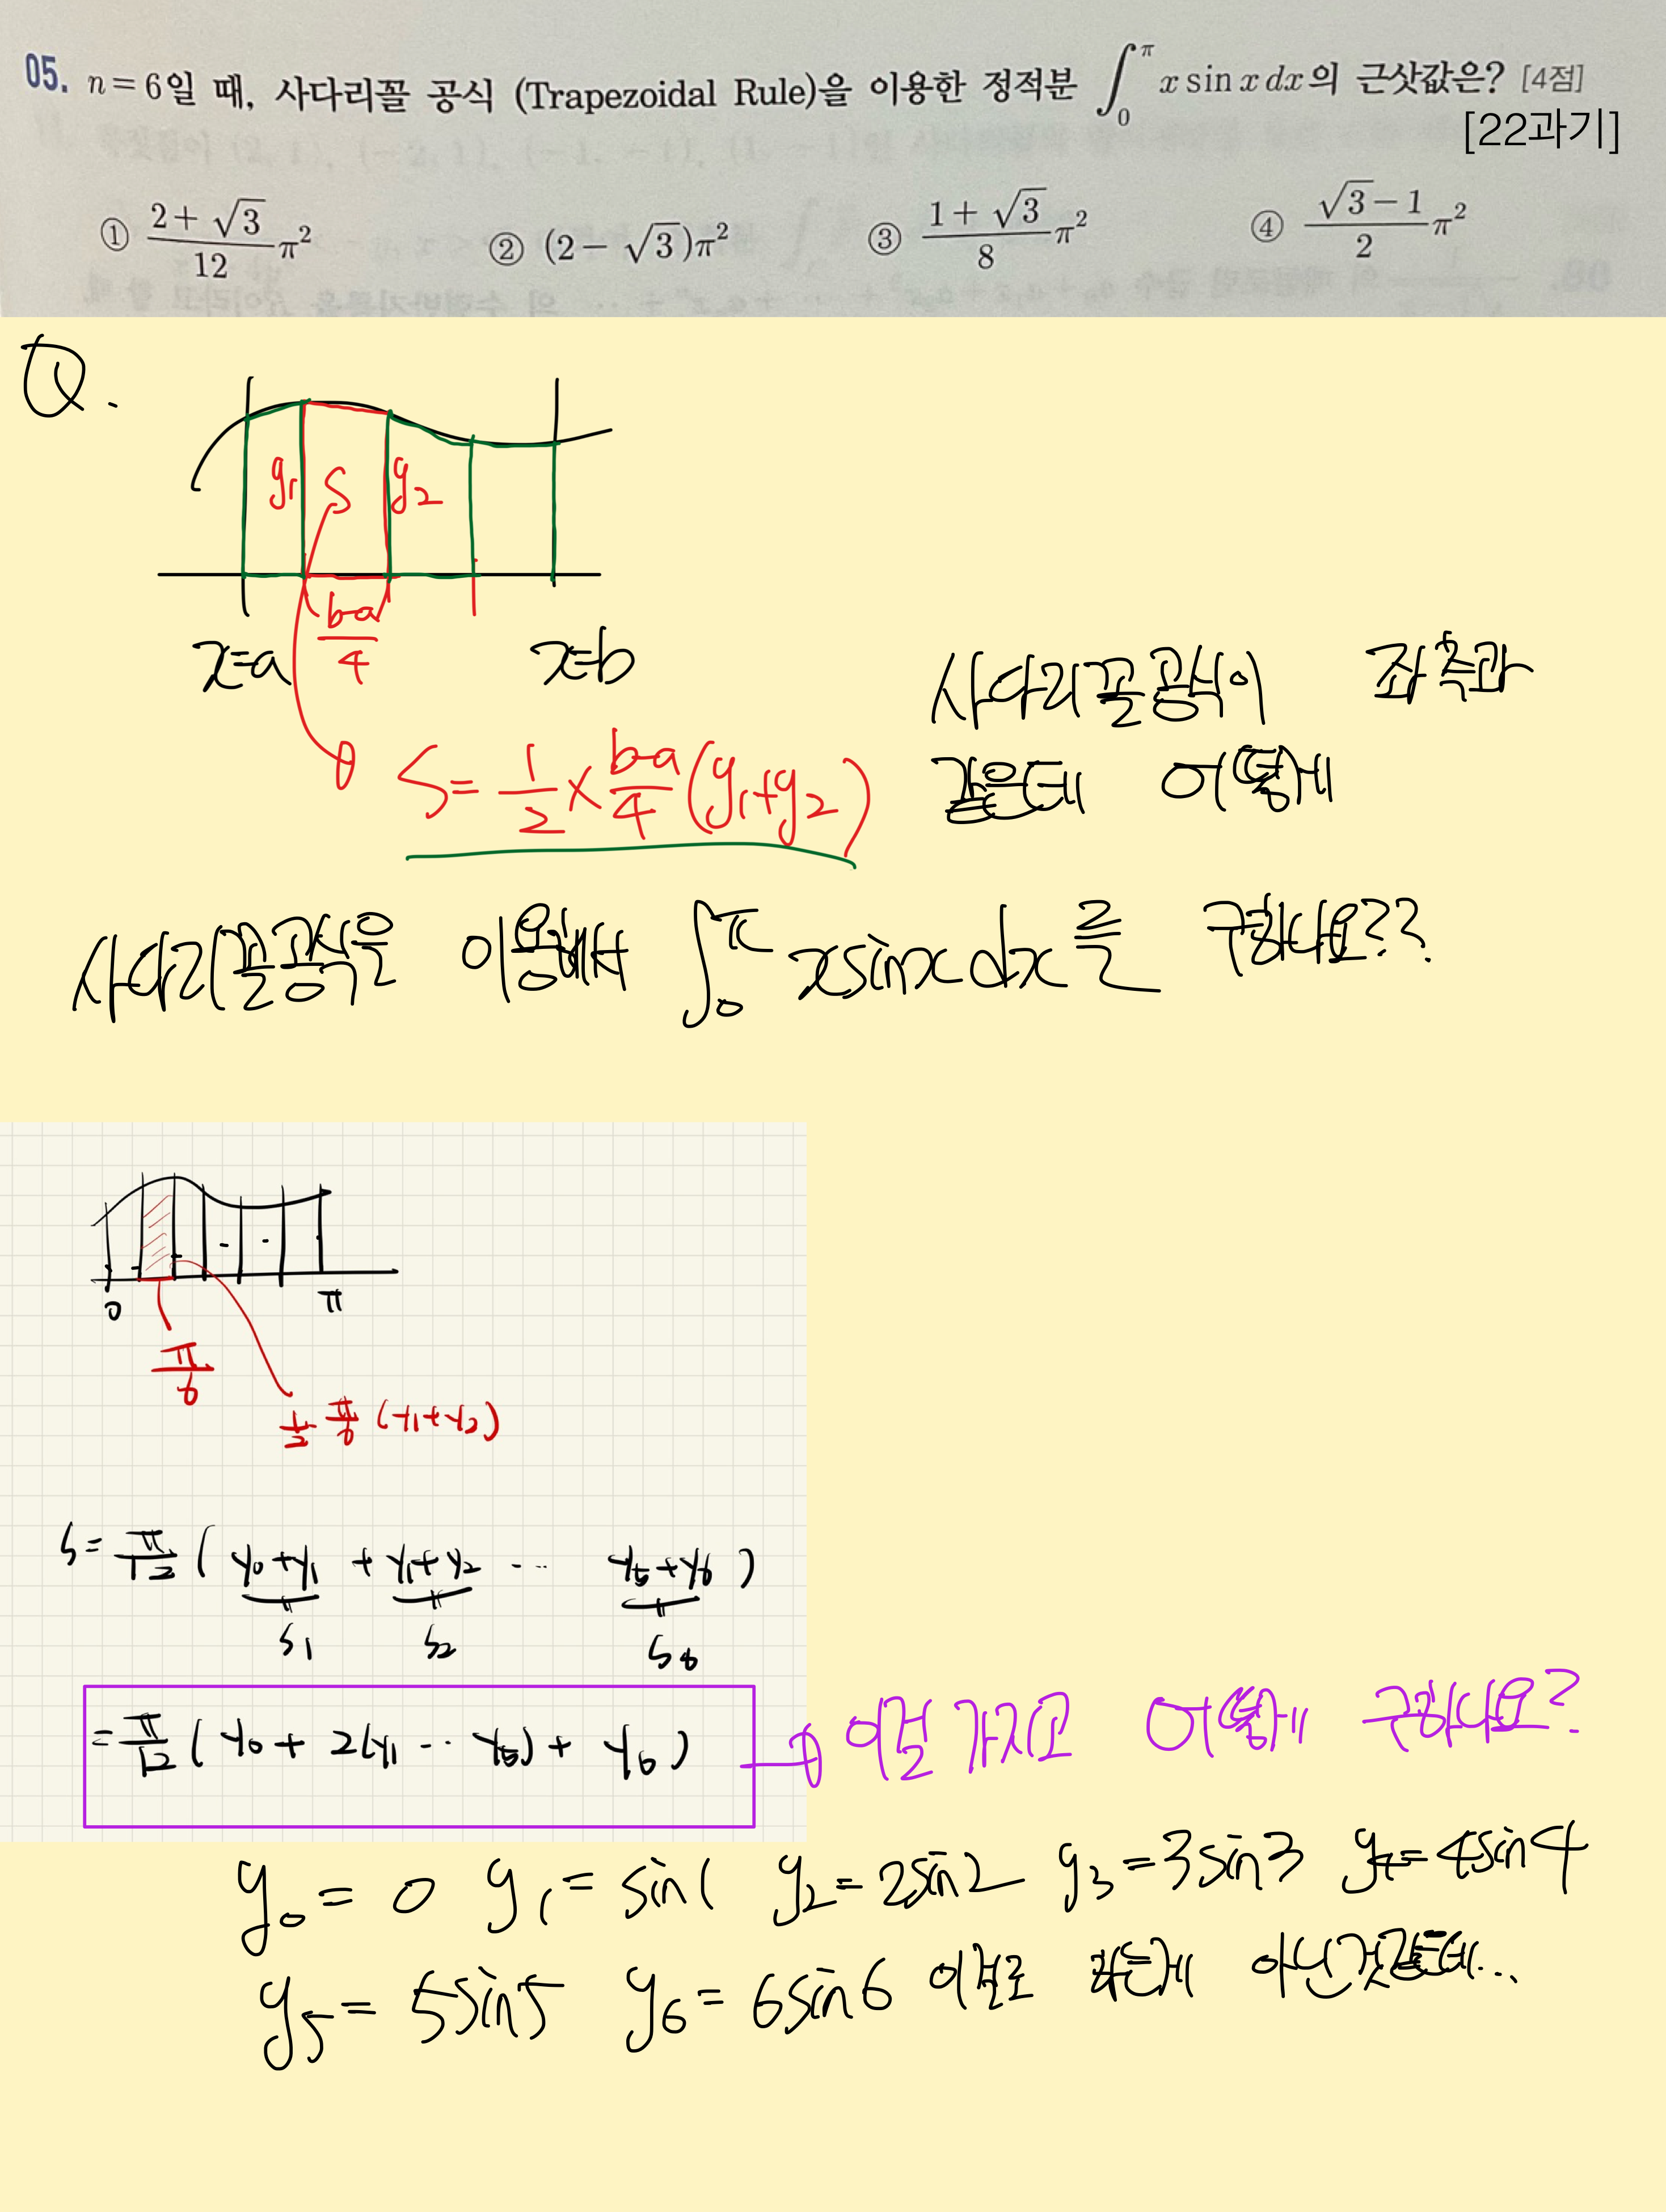 05. n=6일 때, 사다리꼴 공식 (Trapezoidal Rule)을 이용한 정적분 ∫₀^π x sin x dx의 근삿값은? [4점]
[22과기]
① (2+√3)/12 π² ② (2−√3)π² ③ (1+√3)/8 π² ④ (√3−1)/2 π²
Q.
y₁ S y₂
(b-a)/4
x=a x=b
사다리꼴공식이 좌측과
S = 1/2 × (b-a)/4 (y₁+y₂)
같은데 어떻게
사다리꼴공식을 이용해서 ∫₀^π xsinx dx를 구하나요??
0 π
π/6
1/2 π/6 (y₁+y₂)
S = π/12 ( y₀+y₁ + y₁+y₂ ... y₅+y₆ )
S₁ S₂ S₆
= π/12 ( y₀ + 2(y₁ ... y₅) + y₆ )
이걸 가지고 어떻게 구하나요?
y₀ = 0 y₁ = sin1 y₂ = 2sin2 y₃ = 3sin3 y₄ = 4sin4
y₅ = 5sin5 y₆ = 6sin6 이걸로 하는게 아닌것같은데...